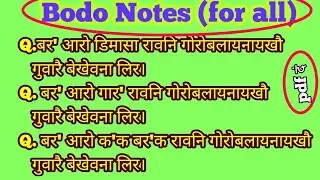 Bodo Notes (for all)
Q.बर' आरो डिमासा रावनि गोरोबलायनायखौ
गुवारै बेखेवना लिर।
Q. बर' आरो गार' रावनि गोरोबलायनायखौ
गुवारै बेखेवना लिर।
Q. बर' आरो क'क बर'क रावनि गोरोबलायनायखौ
गुवारै बेखेवना लिर।